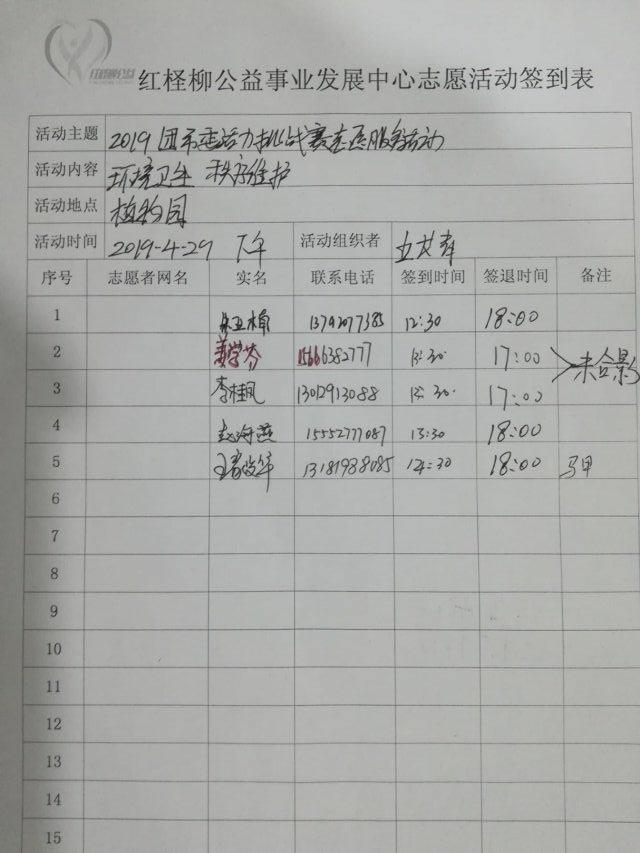 红柽柳公益事业发展中心志愿活动签到表
活动主题 2019团市委活力挑战赛志愿服务活动
活动内容 环境卫生 秩序维护
活动地点 植物园
活动时间 2019-4-29 下午 活动组织者
序号 志愿者网名 实名 联系电话 签到时间 签退时间 备注
1 13792077385 12:30 18:00
2 姜学芬 15666382777 13:30 17:00 未合影
3 李桂凤 13012913088 13:30 17:00
4 赵海燕 15552777087 13:30 18:00
5 13181938085 12:30 18:00 马甲
6
7
8
9
10
11
12
13
14
15